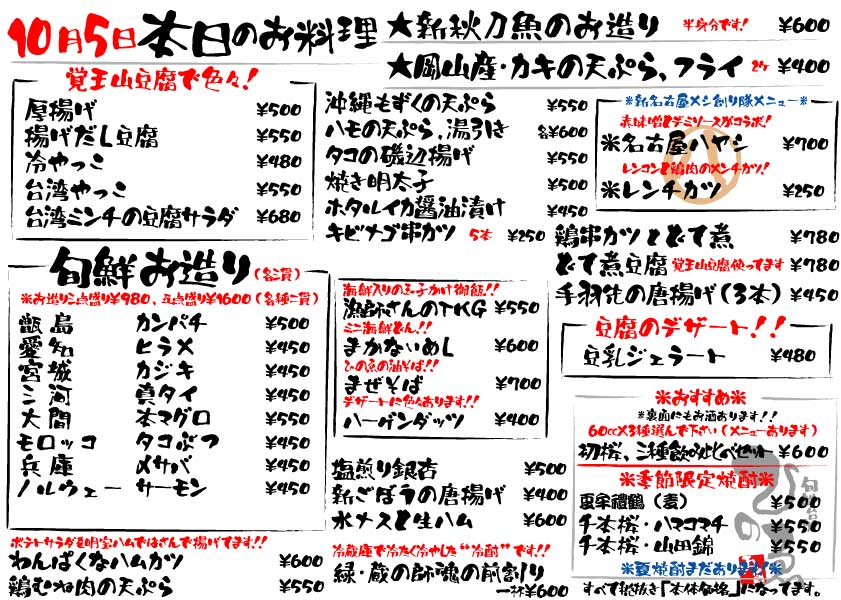 10月5日 本日のお料理
★新秋刀魚のお造り 半身分です! ¥600
★岡山産・カキの天ぷら、フライ 2ケ ¥400
覚王山豆腐で色々!
厚揚げ ¥500
揚げだし豆腐 ¥550
冷やっこ ¥480
台湾やっこ ¥550
台湾ミンチの豆腐サラダ ¥680
沖縄もずくの天ぷら ¥550
ハモの天ぷら、湯引き 各¥600
タコの磯辺揚げ ¥550
焼き明太子 ¥500
ホタルイカ醤油漬け ¥450
キビナゴ串カツ 5本 ¥250
※新名古屋メシ創り隊メニュー※
赤味噌とデミソースがコラボ!
※名古屋ハヤシ ¥700
レンコンと鶏肉のメンチカツ!
※レンチカツ ¥250
鶏串カツとどて煮 ¥780
どて煮豆腐 覚王山豆腐使ってます ¥780
手羽先の唐揚げ(3本) ¥450
旬鮮お造り(各二貫)
※お造り三点盛り¥980、五点盛り¥1600(各種二貫)
甑島 カンパチ ¥500
愛知 ヒラメ ¥450
宮城 カジキ ¥450
三河 真タイ ¥450
大間 本マグロ ¥550
モロッコ タコぶつ ¥450
兵庫 〆サバ ¥450
ノルウェー サーモン ¥450
海鮮入りの玉子かけ御飯!!
漁師さんのTKG ¥550
ミニ海鮮どん!!
まかないめし ¥600
ひの魚の油そば!!
まぜそば ¥700
デザートに色々あります!!
ハーゲンダッツ ¥400
豆腐のデザート!!
豆乳ジェラート ¥480
※おすすめ※
※裏面にもお酒あります!!
60cc×3種選んで下さい(メニューあります)
初桜、三種飲みくらべセット ¥600
※季節限定焼酎※
夏宇禮鶴(麦) ¥500
千本桜・ハマコマチ ¥550
千本桜・山田錦 ¥550
※夏焼酎まだあります!※
すべて税抜き「本体価格」になってます。
塩煎り銀杏 ¥500
新ごぼうの唐揚げ ¥400
水ナスと生ハム ¥600
ポテトサラダを明宝ハムではさんで揚げてます!!
わんぱくなハムカツ ¥600
鶏むね肉の天ぷら ¥550
冷蔵庫で冷たく冷やした“冷酎”です!!
緑・蔵の師魂の前割り
一杯¥600